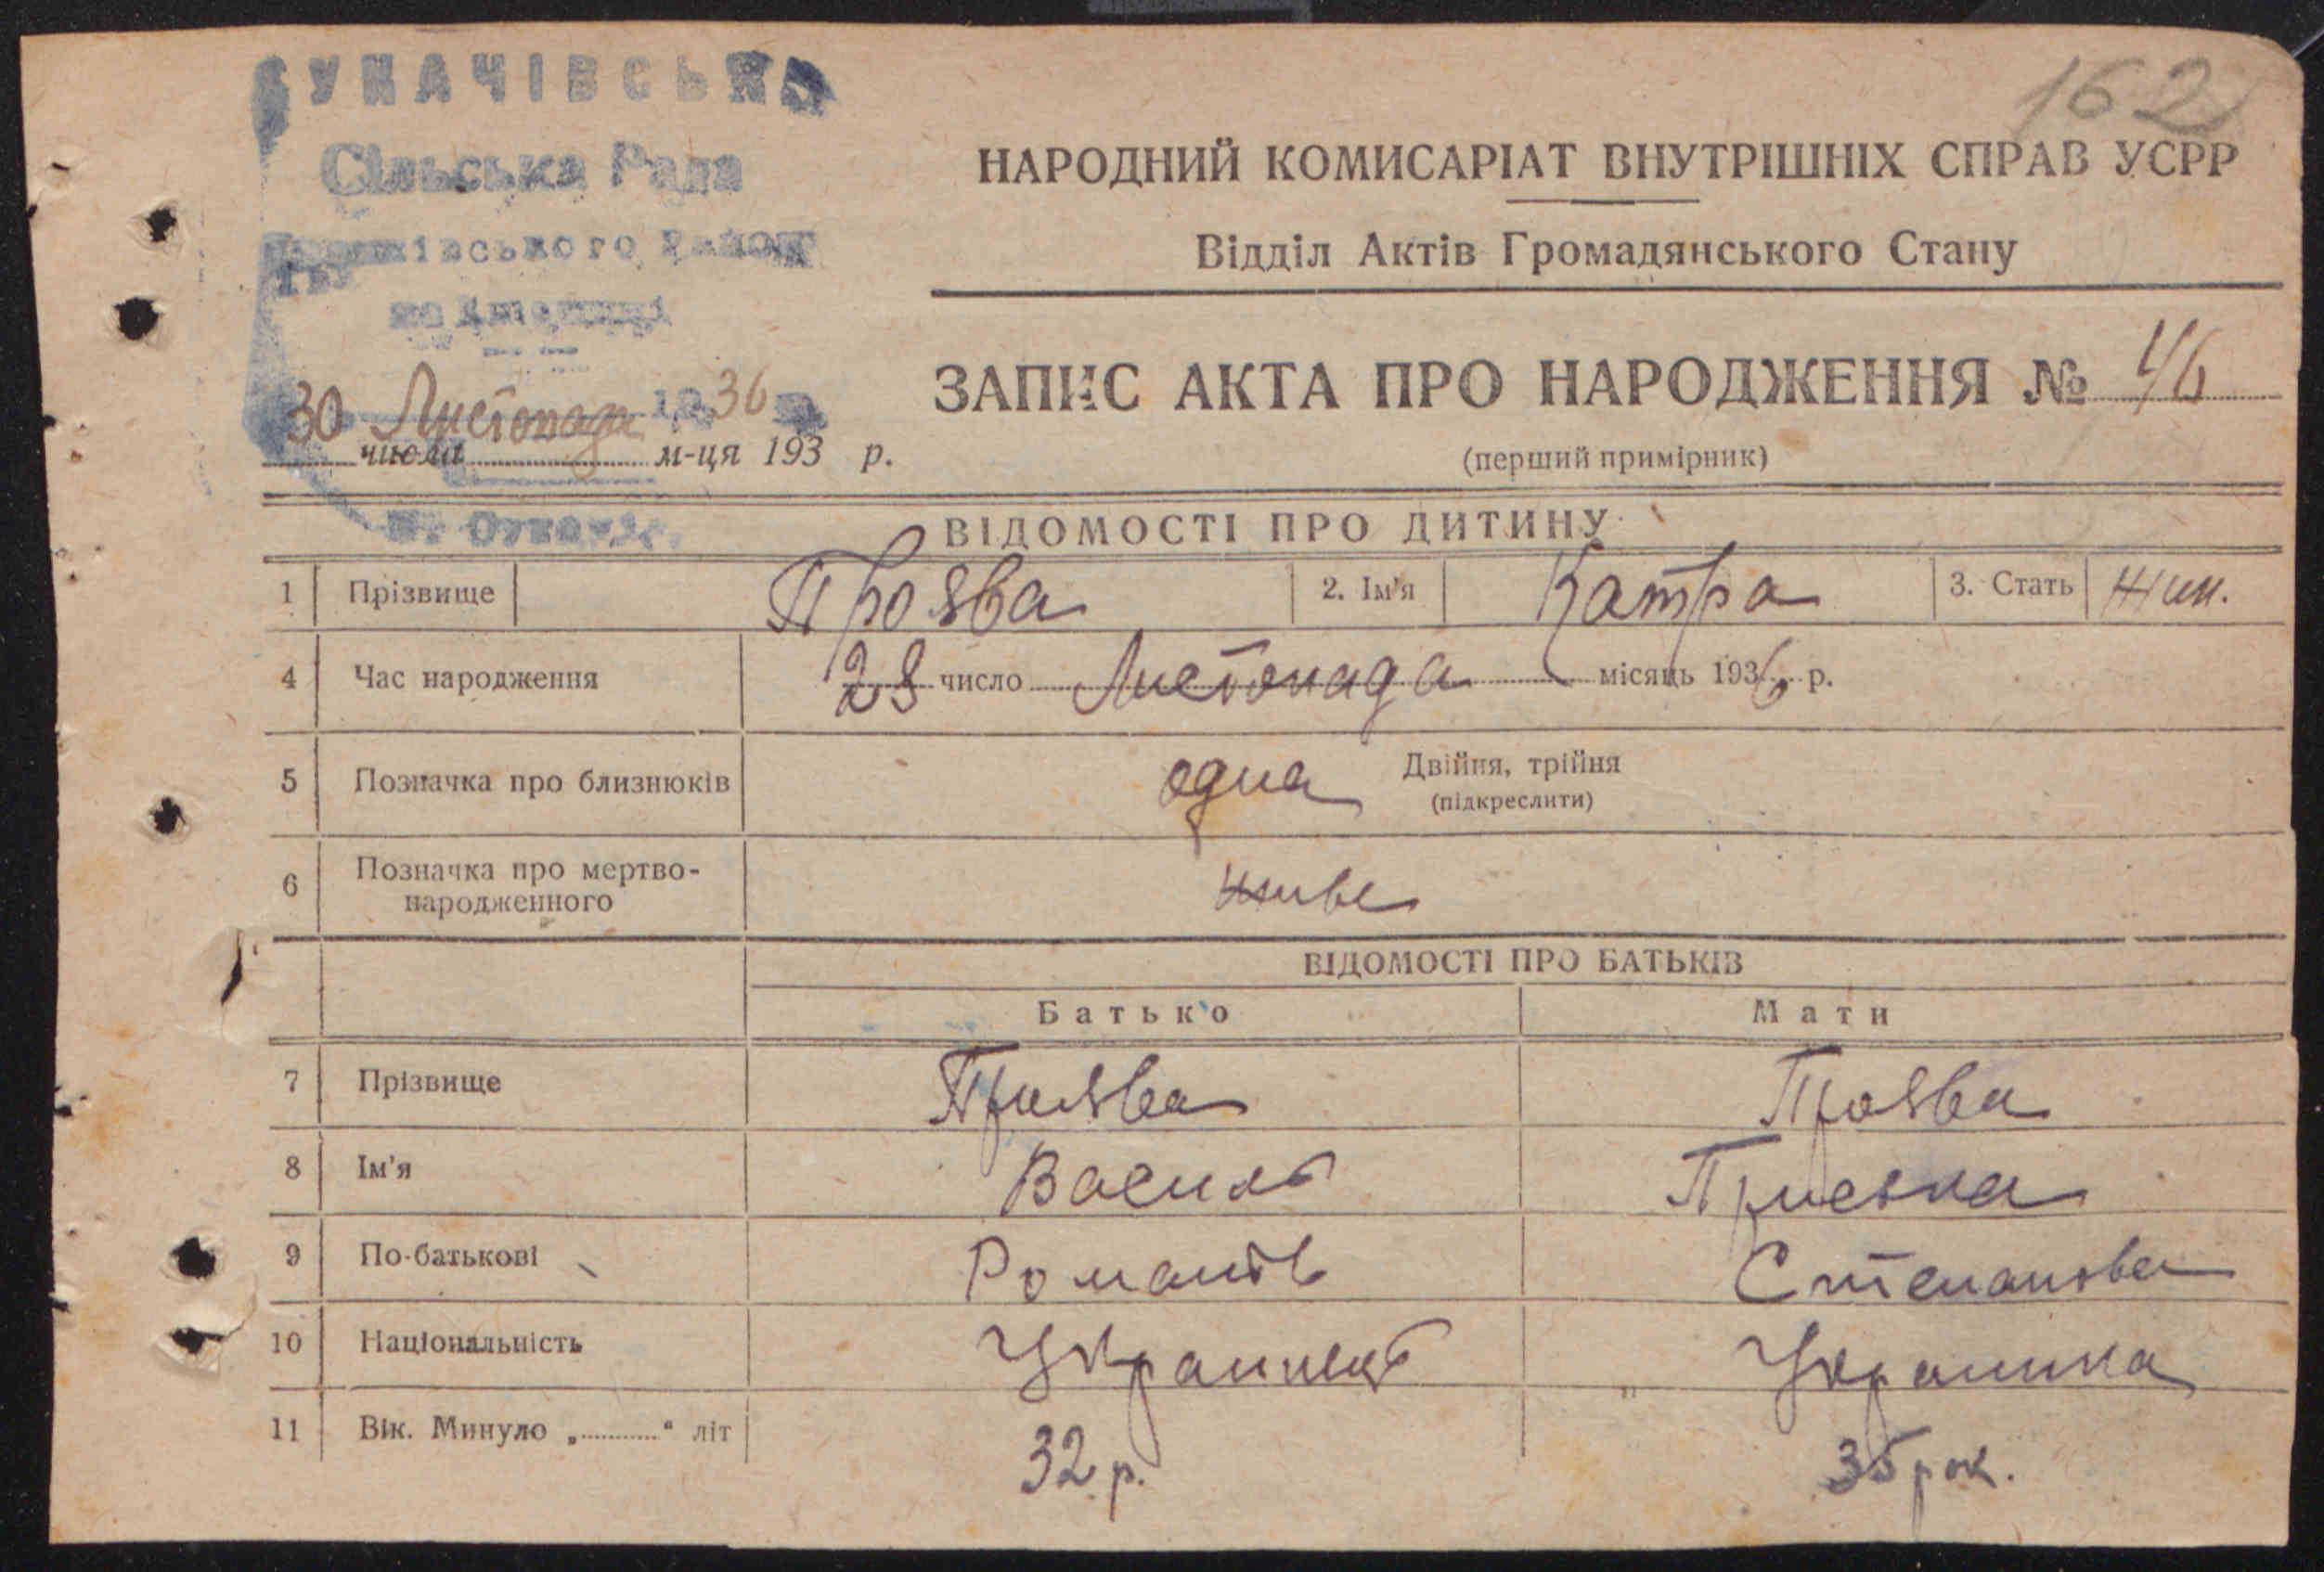 162
СУКАЧІВСЬКА
Сільська Рада
НАРОДНИЙ КОМИСАРІАТ ВНУТРІШНІХ СПРАВ УСРР
Відділ Актів Громадянського Стану
30 Листопада 1936
числа м-ця 193 р.
ЗАПИС АКТА ПРО НАРОДЖЕННЯ № 46
(перший примірник)
ВІДОМОСТІ ПРО ДИТИНУ
1 Прізвище Проява 2. Ім'я Катра 3. Стать жин.
4 Час народження 28 число Листопада місяць 1936 р.
5 Позначка про близнюків одна Двійня, трійня
(підкреслити)
6 Позначка про мертво-
народженного живе
ВІДОМОСТІ ПРО БАТЬКІВ
Батько Мати
7 Прізвище Проява Проява
8 Ім'я Василь Приська
9 По-батькові Романов Степанова
10 Національність Украинець Украинка
11 Вік. Минуло „............“ літ 32 р. 35 рок.